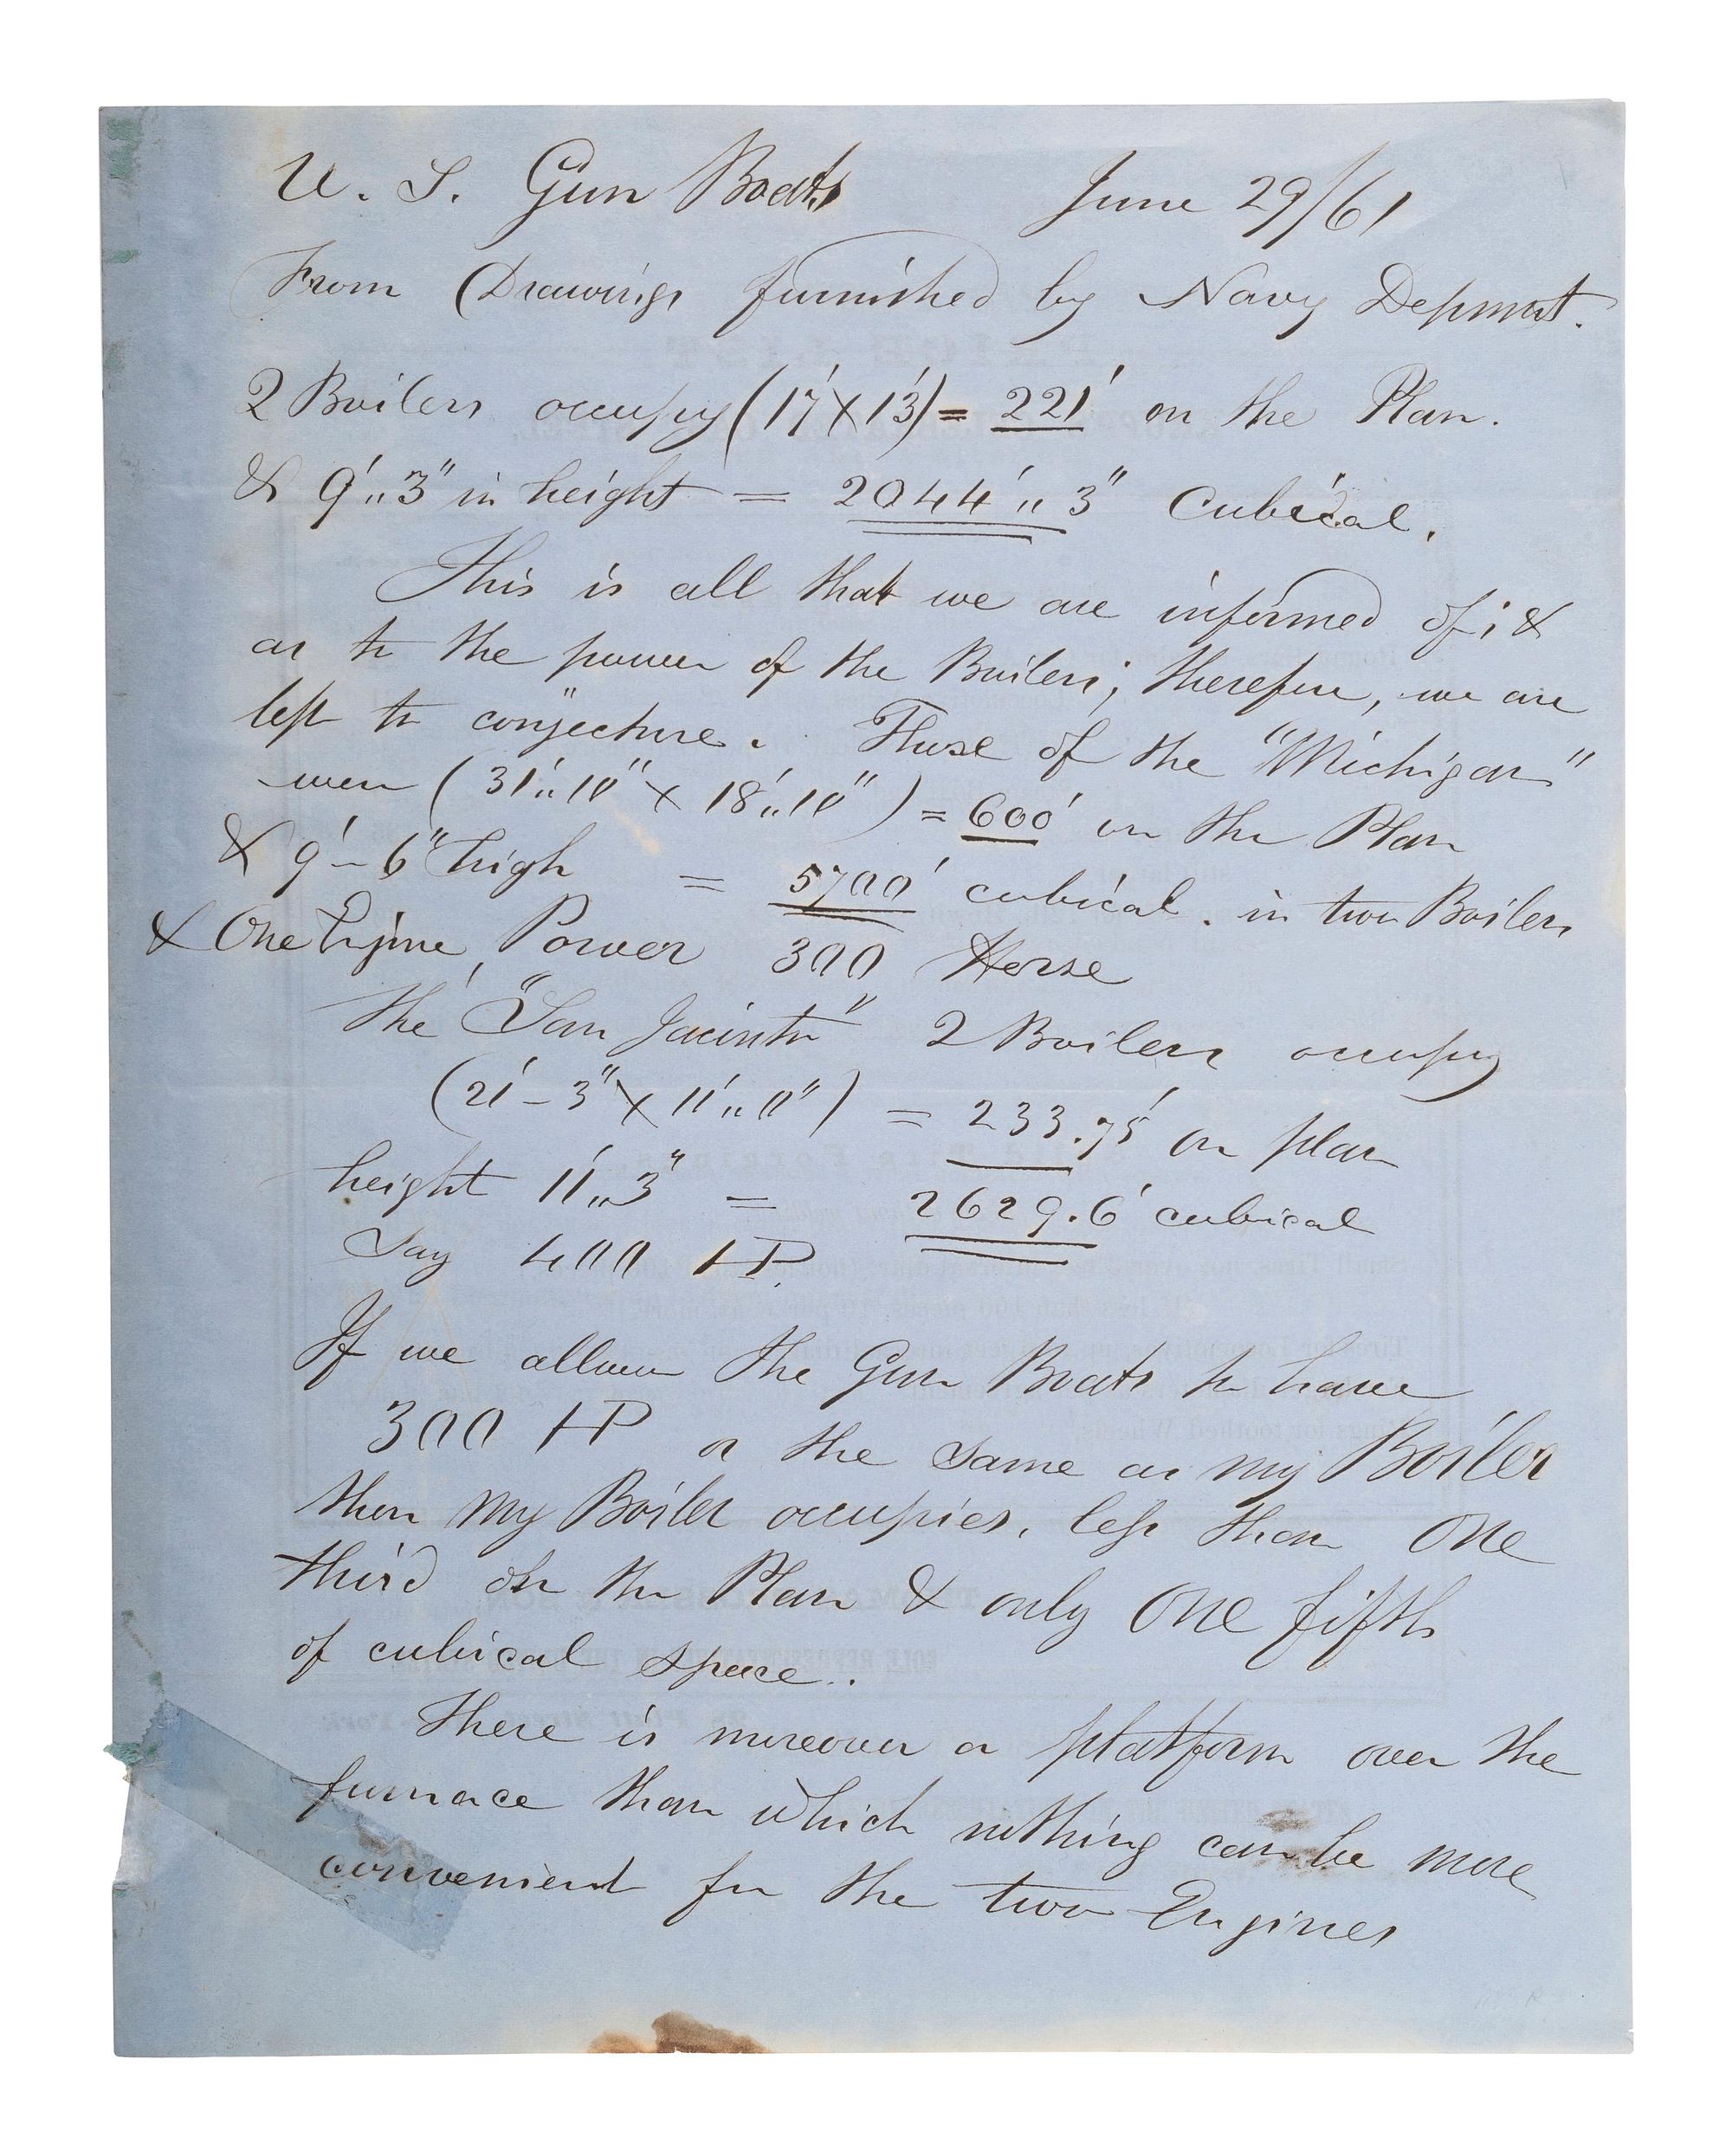 U. S. Gun Boats June 29/61
From Drawings furnished by Navy Depmnt.
2 Boilers occupy (17' x 13') = 221' on the Plan.
& 9' „ 3" in height = 2044' „ 3" Cubical.
This is all that we are informed of; &
as to the power of the Boilers; therefore, we are
left to conjecture. Those of the "Michigan"
were (31' „ 10" x 18' „ 10") = 600' on the Plan
& 9' – 6" high = 5700' cubical. in two Boilers
& One Engine, Power 300 Horse
The "San Jacinto" 2 Boilers occupy
(21' – 3" x 11' „ 0") = 233.75' on plan
height 11' „ 3" = 2629.6' cubical
Say 400 HP.
If we allow the Gun Boats to have
300 HP or the same as my Boiler
then my Boiler occupies, less than One
third on the Plan & only One fifth
of cubical space.
There is moreover a platform over the
furnace than which nothing can be more
convenient for the two Engines